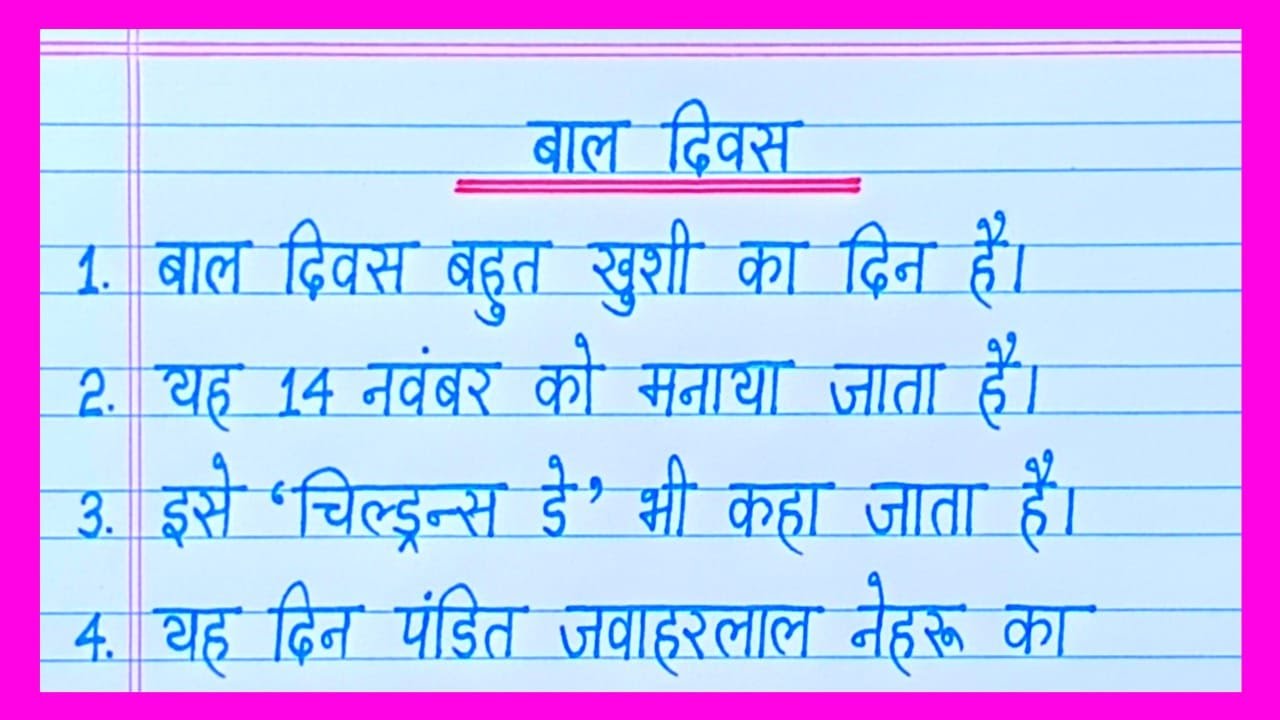 बाल दिवस
1. बाल दिवस बहुत खुशी का दिन है।
2. यह 14 नवंबर को मनाया जाता है।
3. इसे ‘चिल्ड्रन्स डे’ भी कहा जाता है।
4. यह दिन पंडित जवाहरलाल नेहरू का